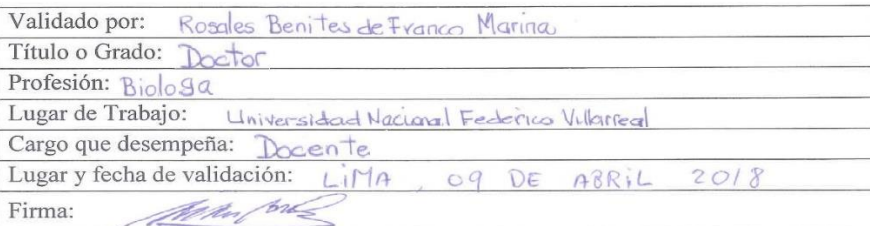 Validado por: Rosales Benites de Franco Marina
Título o Grado: Doctor
Profesión: Biologa
Lugar de Trabajo: Universidad Nacional Federico Villarreal
Cargo que desempeña: Docente
Lugar y fecha de validación: LiMA, 09 DE ABRiL 2018
Firma: